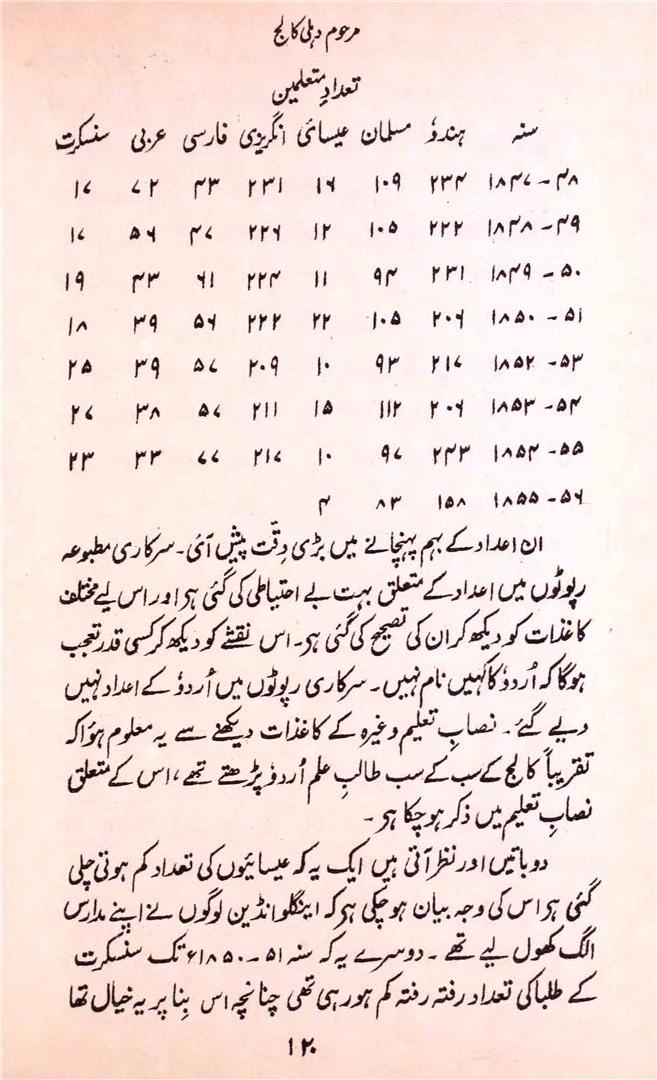 مرحوم دہلی کالج
تعدادِ متعلمین
سنہ ہندوٗ مسلمان عیسائی انگریزی فارسی عربی سنسکرت
۱۸۴۷-۴۸ ۲۳۴ ۱۰۹ ۱۶ ۲۳۱ ۴۳ ۷۲ ۱۷
۱۸۴۸-۴۹ ۲۲۲ ۱۰۵ ۱۲ ۲۲۶ ۴۷ ۵۶ ۱۷
۱۸۴۹-۵۰ ۲۳۱ ۹۴ ۱۱ ۲۲۴ ۶۱ ۴۳ ۱۹
۱۸۵۰-۵۱ ۲۰۶ ۱۰۵ ۲۲ ۲۲۲ ۵۶ ۳۹ ۱۸
۱۸۵۲-۵۳ ۲۱۷ ۹۳ ۱۰ ۲۰۹ ۵۷ ۳۹ ۲۵
۱۸۵۳-۵۴ ۲۰۶ ۱۱۲ ۱۵ ۲۱۱ ۵۷ ۳۸ ۲۷
۱۸۵۴-۵۵ ۲۴۳ ۹۷ ۱۰ ۲۱۷ ۷۷ ۳۳ ۲۳
۱۸۵۵-۵۶ ۱۵۸ ۸۳ ۴
ان اعداد کے بہم پہنچانے میں بڑی دِقّت پیش آئی۔ سرکاری مطبوعہ
رپوٹوں میں اعداد کے متعلق بہت بے احتیاطی کی گئی ہر اور اس لیے مختلف
کاغذات کو دیکھ کر ان کی تصحیح کی گئی ہر۔ اس نقشے کو دیکھ کر کسی قدر تعجب
ہوگا کہ اُردوٗ کا کہیں نام نہیں۔ سرکاری رپوٹوں میں اُردوٗ کے اعداد نہیں
دیے گئے۔ نصابِ تعلیم وغیرہ کے کاغذات دیکھنے سے یہ معلوم ہؤا کہ
تقریباً کالج کے سب کے سب طالبِ علم اُردوٗ پڑھتے تھے، اس کے متعلق
نصابِ تعلیم میں ذکر ہو چکا ہر۔
دو باتیں اور نظر آتی ہیں ایک یہ کہ عیسائیوں کی تعداد کم ہوتی چلی
گئی ہر اس کی وجہ بیان ہو چکی ہر کہ اینگلو انڈین لوگوں نے اپنے مدارس
الگ کھول لیے تھے۔ دوسرے یہ کہ سنہ ۵۱-۱۸۵۰ء تک سنسکرت
کے طلبا کی تعداد رفتہ رفتہ کم ہو رہی تھی چنانچہ اس بِنا پر یہ خیال تھا
۱۲۰